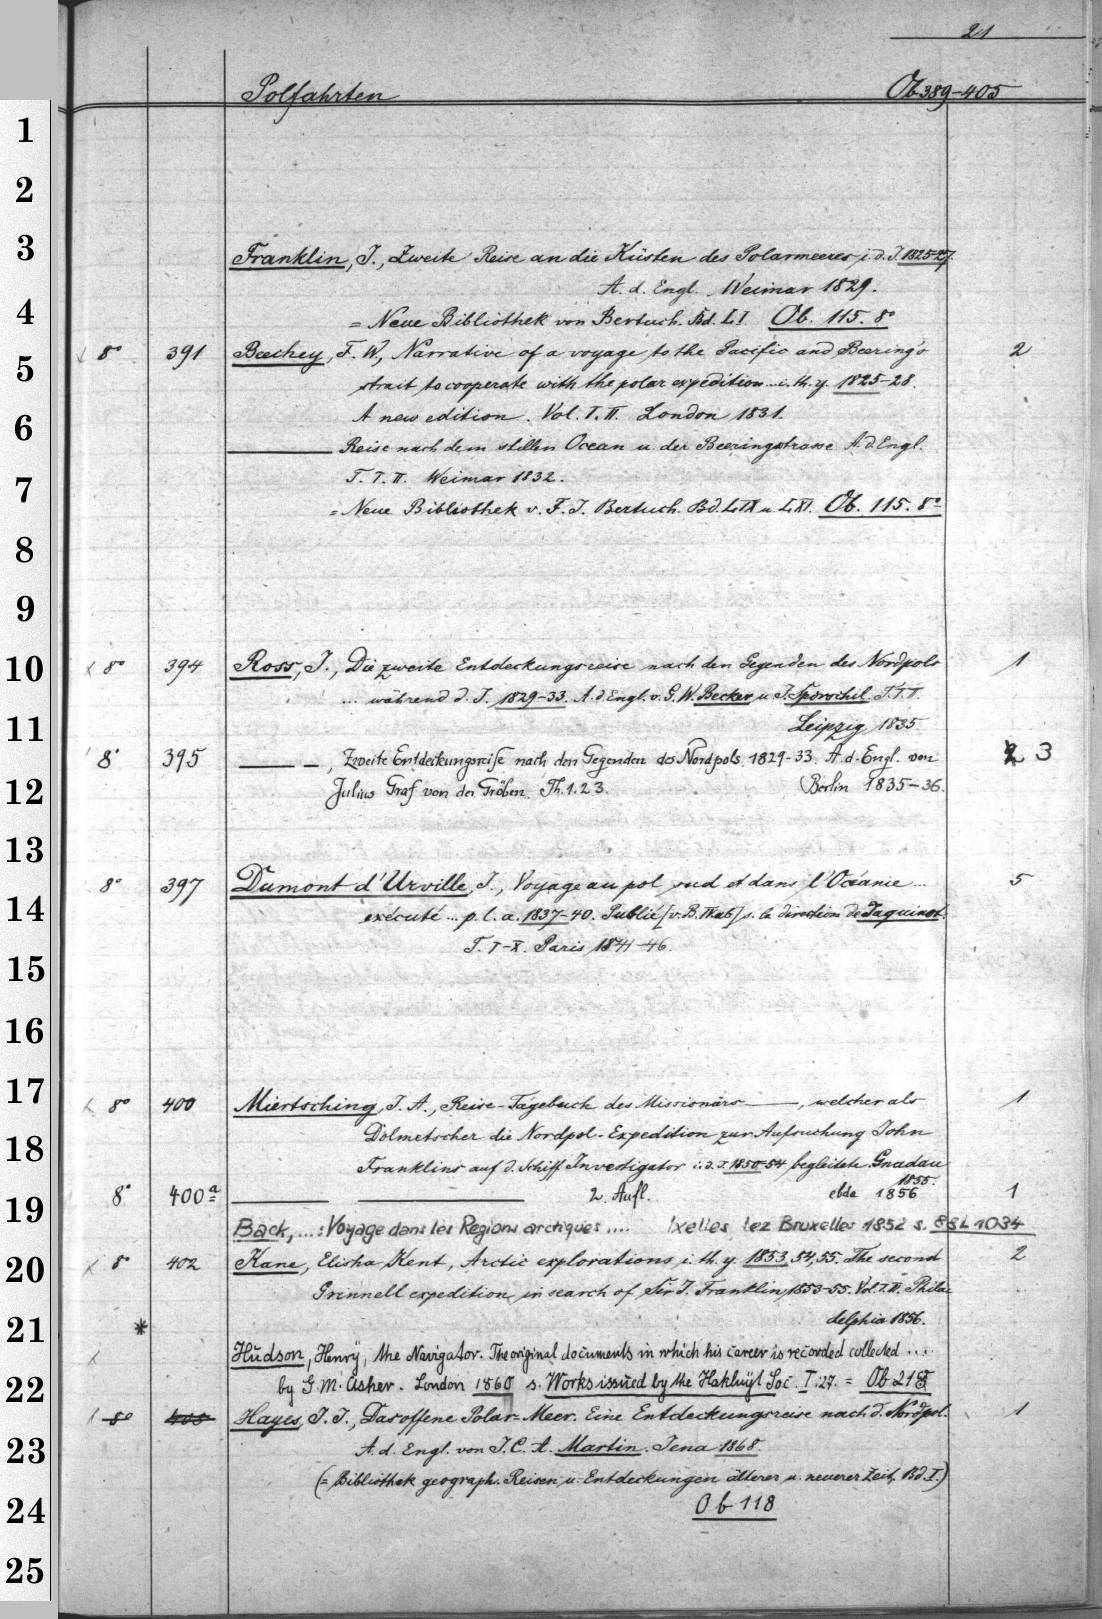 21
Polfahrten Ob 389-405
1
2
3
4
5
6
7
8
9
10
11
12
13
14
15
16
17
18
19
20
21
22
23
24
25
Franklin, J., Zweite Reise an die Küsten des Polarmeeres, i. d. J. 1825-27.
A. d. Engl. Weimar 1829.
= Neue Bibliothek von Bertuch. Bd. LI Ob. 115. 8°
8° 391 Beechey, F. W., Narrative of a voyage to the Pacific and Beering's 2
strait to cooperate with the polar expedition... i. th. y. 1825-28.
A new edition. Vol. I. II. London 1831.
——— Reise nach dem stillen Ocean u. der Beeringstrasse A. d. Engl.
T. I. II. Weimar 1832.
= Neue Bibliothek v. F. J. Bertuch. Bd. LIX u. LXI. Ob. 115. 8°
8° 394 Ross, J., Die zweite Entdeckungsreise nach den Gegenden des Nordpols 1
... während d. J. 1829-33. A. d. Engl. v. G. W. Becker u. J. Sporschil. T. I. II.
Leipzig 1835.
8° 395 ——— —, Zweite Entdeckungsreise nach den Gegenden des Nordpols. 1829-33. A. d. Engl. von 2 3
Julius Graf von der Gröben. Th. 1. 2 3. Berlin 1835-36.
8° 397 Dumont d'Urville, J., Voyage au pol sud et dans l'Océanie ... 5
exécuté ... p. l. a. 1837-40. Publié [v. B. IV ab] s. la direction de Jaquinot.
T. I-X. Paris 1841-46.
8° 400 Miertsching, J. A., Reise-Tagebuch des Missionärs ———, welcher als 1
Dolmetscher die Nordpol-Expedition zur Aufsuchung John
Franklins auf d. Schiff Investigator i. d. J. 1850-54 begleitete Gnadau
1855.
8° 400a ——— ——— 2. Aufl. ebda 1856 1
Back, ... : Voyage dans les Regions arctiques .... Ixelles lez Bruxelles 1852 s. 8SL 1034
8° 402 Kane, Elisha Kent, Arctic explorations i. th. y. 1853, 54, 55. The second 2
Grinnell expedition in search of Sir J. Franklin, 1853-55. Vol. I. II. Phila-
* delphia 1856.
Hudson, Henry, the Navigator. The original documents in which his career is recorded collected ...
by G. M. Asher. London 1860 s. Works issued by the Hakluyt Soc. I: 27. = Ob 218
8° 405 Hayes, J. J., Das offene Polar-Meer. Eine Entdeckungsreise nach d. Nordpol. 1
A. d. Engl. von J. C. A. Martin. Jena 1868.
(= Bibliothek geograph. Reisen u. Entdeckungen älterer u. neuerer Zeit, Bd. I.)
Ob 118